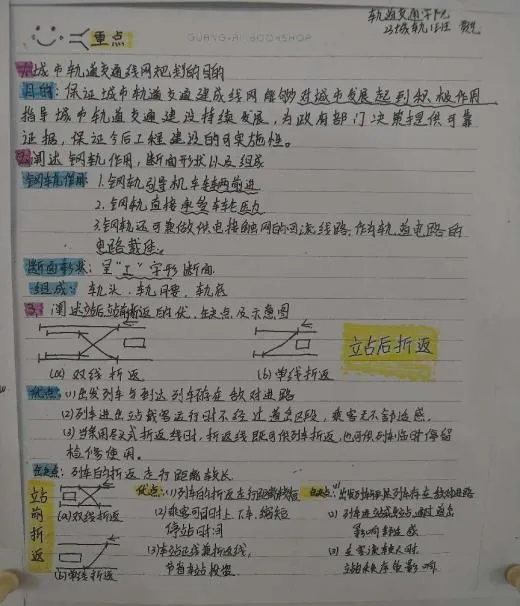 轨道交通学院
重点
GUANG-AI BOOKSHOP
1.城市轨道交通线网规划的目的
目的：保证城市轨道交通建成线网能够对城市发展起到积极作用
指导城市轨道交通建设持续发展，为政府部门决策提供可靠
证据，保证今后工程建设的可实施性。
2.阐述钢轨作用，断面形状以及组成
钢轨作用：1.钢轨引导机车车辆前进
2.钢轨直接承受车轮压力
3.钢轨还可兼做供电接触网的回流线路，作为轨道电路的
电路载体。
断面形状：呈“工”字形断面
组成：轨头、轨腰、轨底
3.阐述站后、站前折返的优、缺点及示意图
(a)双线折返
(b)单线折返
立占后折返
优点：(1)出发列车与到达列车存在敌对进路
(2)列车进出站载客运行时不经过道岔区段，乘客无不舒适感。
(3)当采用尽头式折返线时，折返线既可供列车折返，也可供列车临时停留
检修使用。
缺点：列车的折返走行距离较长
立占前折返
(a)双线折返
(b)单线折返
优点：(1)列车的折返走行距离较短
(2)乘客可同时上下车，缩短
停站时间
(3)车站正线兼折返线，
节省车站投资
缺点：
(2)列车进站或出站通过道岔
影响舒适感
(3)在客流较大时
站台秩序受影响